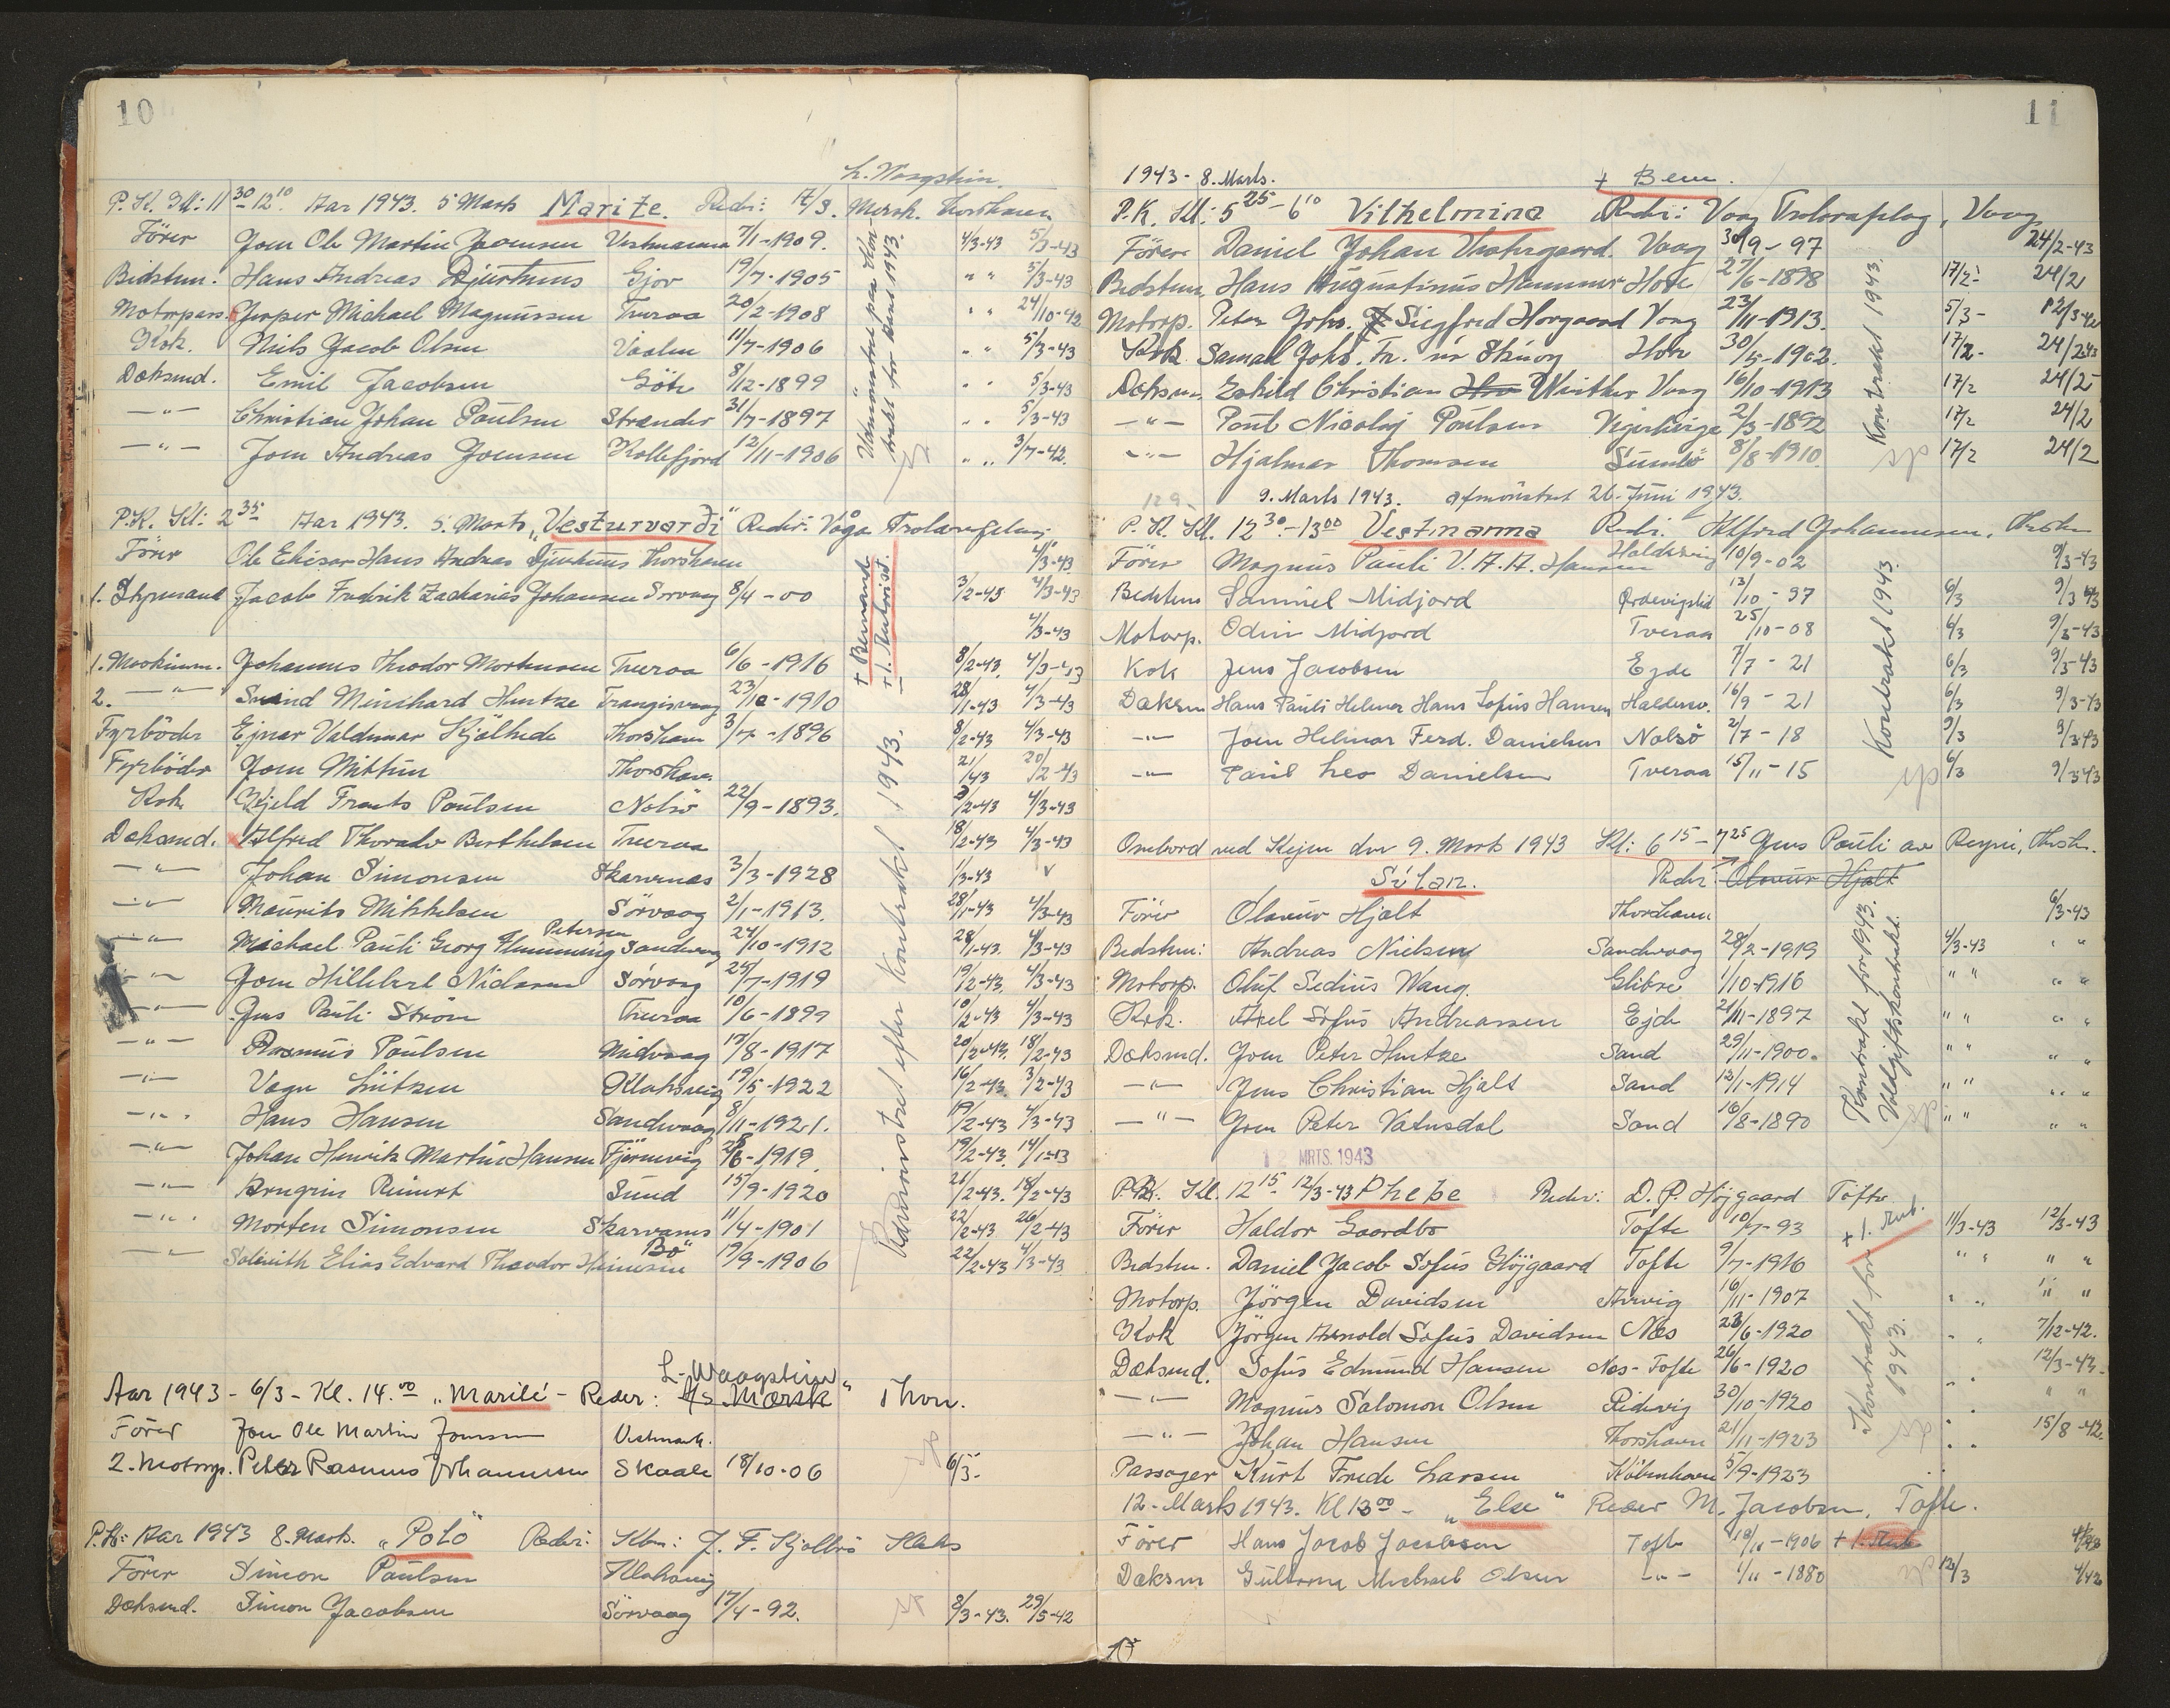 10
L. Waagstein
P.K. Kl: 11 30 - 12 10 Aar 1943. 5 Marts Marite. Reder: Mersk. Thorshavn
Förer Joen Ole Martin Joensen Vestmanna 7/1-1909. 4/3-43 5/3-43
Bedstm. Hans Andreas Djurhuus Gjov 19/7-1905 " " 5/3-43
Motorpas. Jesper Michael Magnussen Tveraa 20/2-1908 " " 24/10-42
Kok. Niels Jacob Olsen 11/7-1906 " " 5/3-43
Daksmd. Emil Jacobsen Göte 8/12-1899 " " 5/3-43
-"- Christian Johan Poulsen Strender 31/7-1897 " " 5/3-43
-"- Joen Andreas Joensen Kollefjord 12/11-1906 " " 3/7-42.
P.K. Kl: 2 35 Aar 1943. 5. Marts, "Vesturvardi" Reder: Vága
Förer Ole Hans Andreas Djurhuus Thorshavn 4/3-43
1. Styrmand Jacob Fredrik Zacharias Johansen Sorvaag 8/4-00 3/2-43 4/3-43
4/3-43
1. Maskinm. Johannes Theodor Mortensen Tveraa 6/6-1916 8/2-43. 4/3-43
2. -"- Svend Minhard Hentze Trangisvaag 23/10-1910 28/1-43 4/3-43
Fyrböder Ejnar Valdemar Kjölhede Thorshavn 3/7-1896 8/2-43 4/3-43
Fyrböder Joen Mittun Thorshavn 21/43 20/2-43
Kok Kjeld Frants Poulsen Nolsö 22/9-1893. 3/2-43 4/3-43
Daksmd. Alfred Thorvald Berthelsen Tveraa 18/2-43 4/3-43
-"- Johan Simonsen Skarvenas 3/3-1928 1/3-43 v
-"- Maurits Mikkelsen Sörvaag 2/1-1913. 28/1-43 4/3-43
Petersen
-"- Michael Pauli Georg Flemming Sandvaag 24/10-1912 28/1-43. 4/3-43
-"- Joen Hillebert Nielsen Sörvaag 24/7-1919 19/2-43. 4/3-43
-"- Jens Pauli Ström Tveraa 10/6-1899 10/2-43 4/3-43
-"- Rasmus Poulsen Midvaag 17/8-1917 20/2-43. 18/2-43
-"- Vagn Lützen Klaksvig 19/5-1922 16/2-43. 3/2-43
-"- Hans Hansen Sandvaag 8/11-1921. 19/2-43 4/3-43
-"- Johan Henrik Martin Hansen Tjörnevig 28/6-1919. 19/2-43. 14/1-43
-"- Arngrim Reinert Sund 15/9-1920 26/2-43. 18/2-43
-"- Morten Simonsen Skarvanes 11/4-1901 22/2-43 26/2-43
-"- Elias Edvard Theodor Heinesen Bö 19/9-1906 22/2-43 4/3-43
Paamönstret efter Kontrakt 1943.
+ Bemand.
L. Waagstein
Aar 1943 - 6/3 - Kl. 14.00 "Marité" - Reder: A/s Mærsk Thvn.
Förer Jon Ole Martin Joensen
2. Motorp. Peter Rasmus Johannesen Skaale 18/10-06 6/3-
P.K: Aar 1943 8. Marts. "Polo" Reder: Kbm: J. F. Kjölbro Klaks
Förer Simon Paulsen Klaksvig
Daksmd. Simon Jacobsen Sörvaag 17/4-92. 8/3-43. 29/5-42
11
1943 - 8. Marts. + Bem.
P.K. Kl: 5 25 - 6 10 Vilhelmina Reder: Vaag Vaag
Förer Daniel Johan Vestergaard. Vaag 30/9-97 24/2-43
Bedstm. Hans Augustinus Hammer Hove 27/6-1898 17/2- 24/2
Motorp. Peter Johs. Siegfred Horgaard Vaag 23/11-1913. 5/3-
Kok Samuel Johs. Fr. Hov 30/5-1902. 17/2- 24/2-43
Daksm. Eskild Christian Winther Vaag 16/10-1913 17/2 24/2
-"- Poul Nicolaj Poulsen 2/3-1892 17/2 24/2
-"- Hjalmar Thomsen Sumbö 8/8-1910. 17/2 24/2
Kontrakt 1943.
9. Marts 1943. afmönstret 26. Juni 1943.
P.K. Kl. 12 30 - 13 00 Vestmanna Redr. Alfred Johannesen, Thorshn
Förer Magnus Pauli V.A.A. Hansen Haldersvig 10/9-02 9/3-43
Bedstem Samuel Midjord 13/10-97 6/3 9/3 43
Motorp. Odin Midjord Tveraa 25/10-08 6/3 9/3-43
Kok Jens Jacobsen Ejde 7/7-21 6/3 9/3-43
Daksm Hans Pauli Helmer Hans Sofus Hansen Haldersv. 16/9-21 6/3 9/3-43
-"- Joen Helmar Ferd. Danielsen Nolsö 2/7-18 9/3 9/3 43
-"- Paul Leo Danielsen Tveraa 15/11-15 6/3 9/3 43
Kontrakt 1943.
Ombord ved Kejen den 9. Marts 1943 Kl: 6 15 - 7 25 Jens Pauli av Reyni, Thsh.
Súlan. Reder: Olavur Hjalt
Förer Olavur Hjalt Thorshavn 6/3-43
Bedstm: Andreas Nielsen Sandvaag 28/2-1919 4/3-43 " "
Motorp. Oluf Sedius Wang. Glibre 1/10-1916 " " " "
Kok. Axel Sofus Andreassen Ejde 21/11-1897 " " " "
Daksmd. Joen Peter Hentze Sand 29/11-1900. " " " "
-"- Jens Christian Hjalt Sand 12/1-1914 " " " "
-"- Joen Peter Vatnsdal Sand 16/8-1890 " " " "
Kontrakt for 1943. Voldgiftskontrakt.
12 MRTS. 1943
P.K. Kl. 12 15 - 12/3-43 Phebe Reder: D. P. Höjgaard Tofte
Förer Haldor Gaardbo Tofte 10/7-93 11/3-43 12/3-43
Bedstm. Daniel Jacob Sofus Höjgaard Tofte 9/7-1916 " " " "
Motorp. Jörgen Davidsen Arnvig 16/11-1907 " " " "
Kok Jörgen Arnold Sofus Davidsen Nes 23/6-1920 " " 7/12-42.
Daksmd. Sofus Edmund Hansen Nes-Tofte 26/6-1920 " 12/3-43.
-"- Magnus Salomon Olsen Ridevig 30/10-1920 " " "
-"- Johan Hansen Thorshavn 21/11-1923 " " 15/8-42.
Passager Kurt Frede Larsen Köbenhavn 5/9-1923
Kontrakt for 1943.
12-Marts 1943. Kl 13 00 - "Else" Reder M. Jacobsen, Tofte.
Förer Hans Jacob Jacobsen Tofte 18/11-1906
Daksm Michael Olsen -"- 1/11-1880 12/3